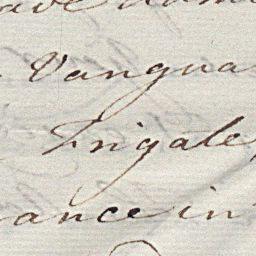 Vangua
Frigate,
ance in